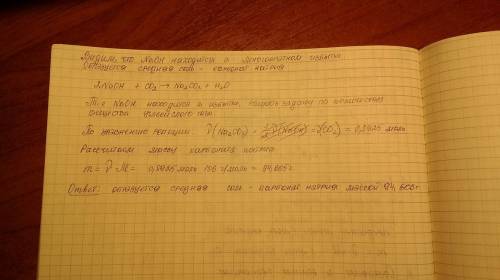 Видим, что NaOH находится в многократном избытке
Образуется средняя соль - карбонат натрия
2NaOH + CO₂ → Na₂CO₃ + H₂O
Т.к NaOH находится в избытке, решаем задачу по количеству
вещества углекислого газа
По уравнению реакции: ν(Na₂CO₃) = ν(CO₂) = 0,8925 моль
Рассчитаем массу карбоната натрия
m = ν · M = 0,8925 моль · 106 г/моль = 94,605 г
Ответ: образуется средняя соль - карбонат натрия массой 94,605 г